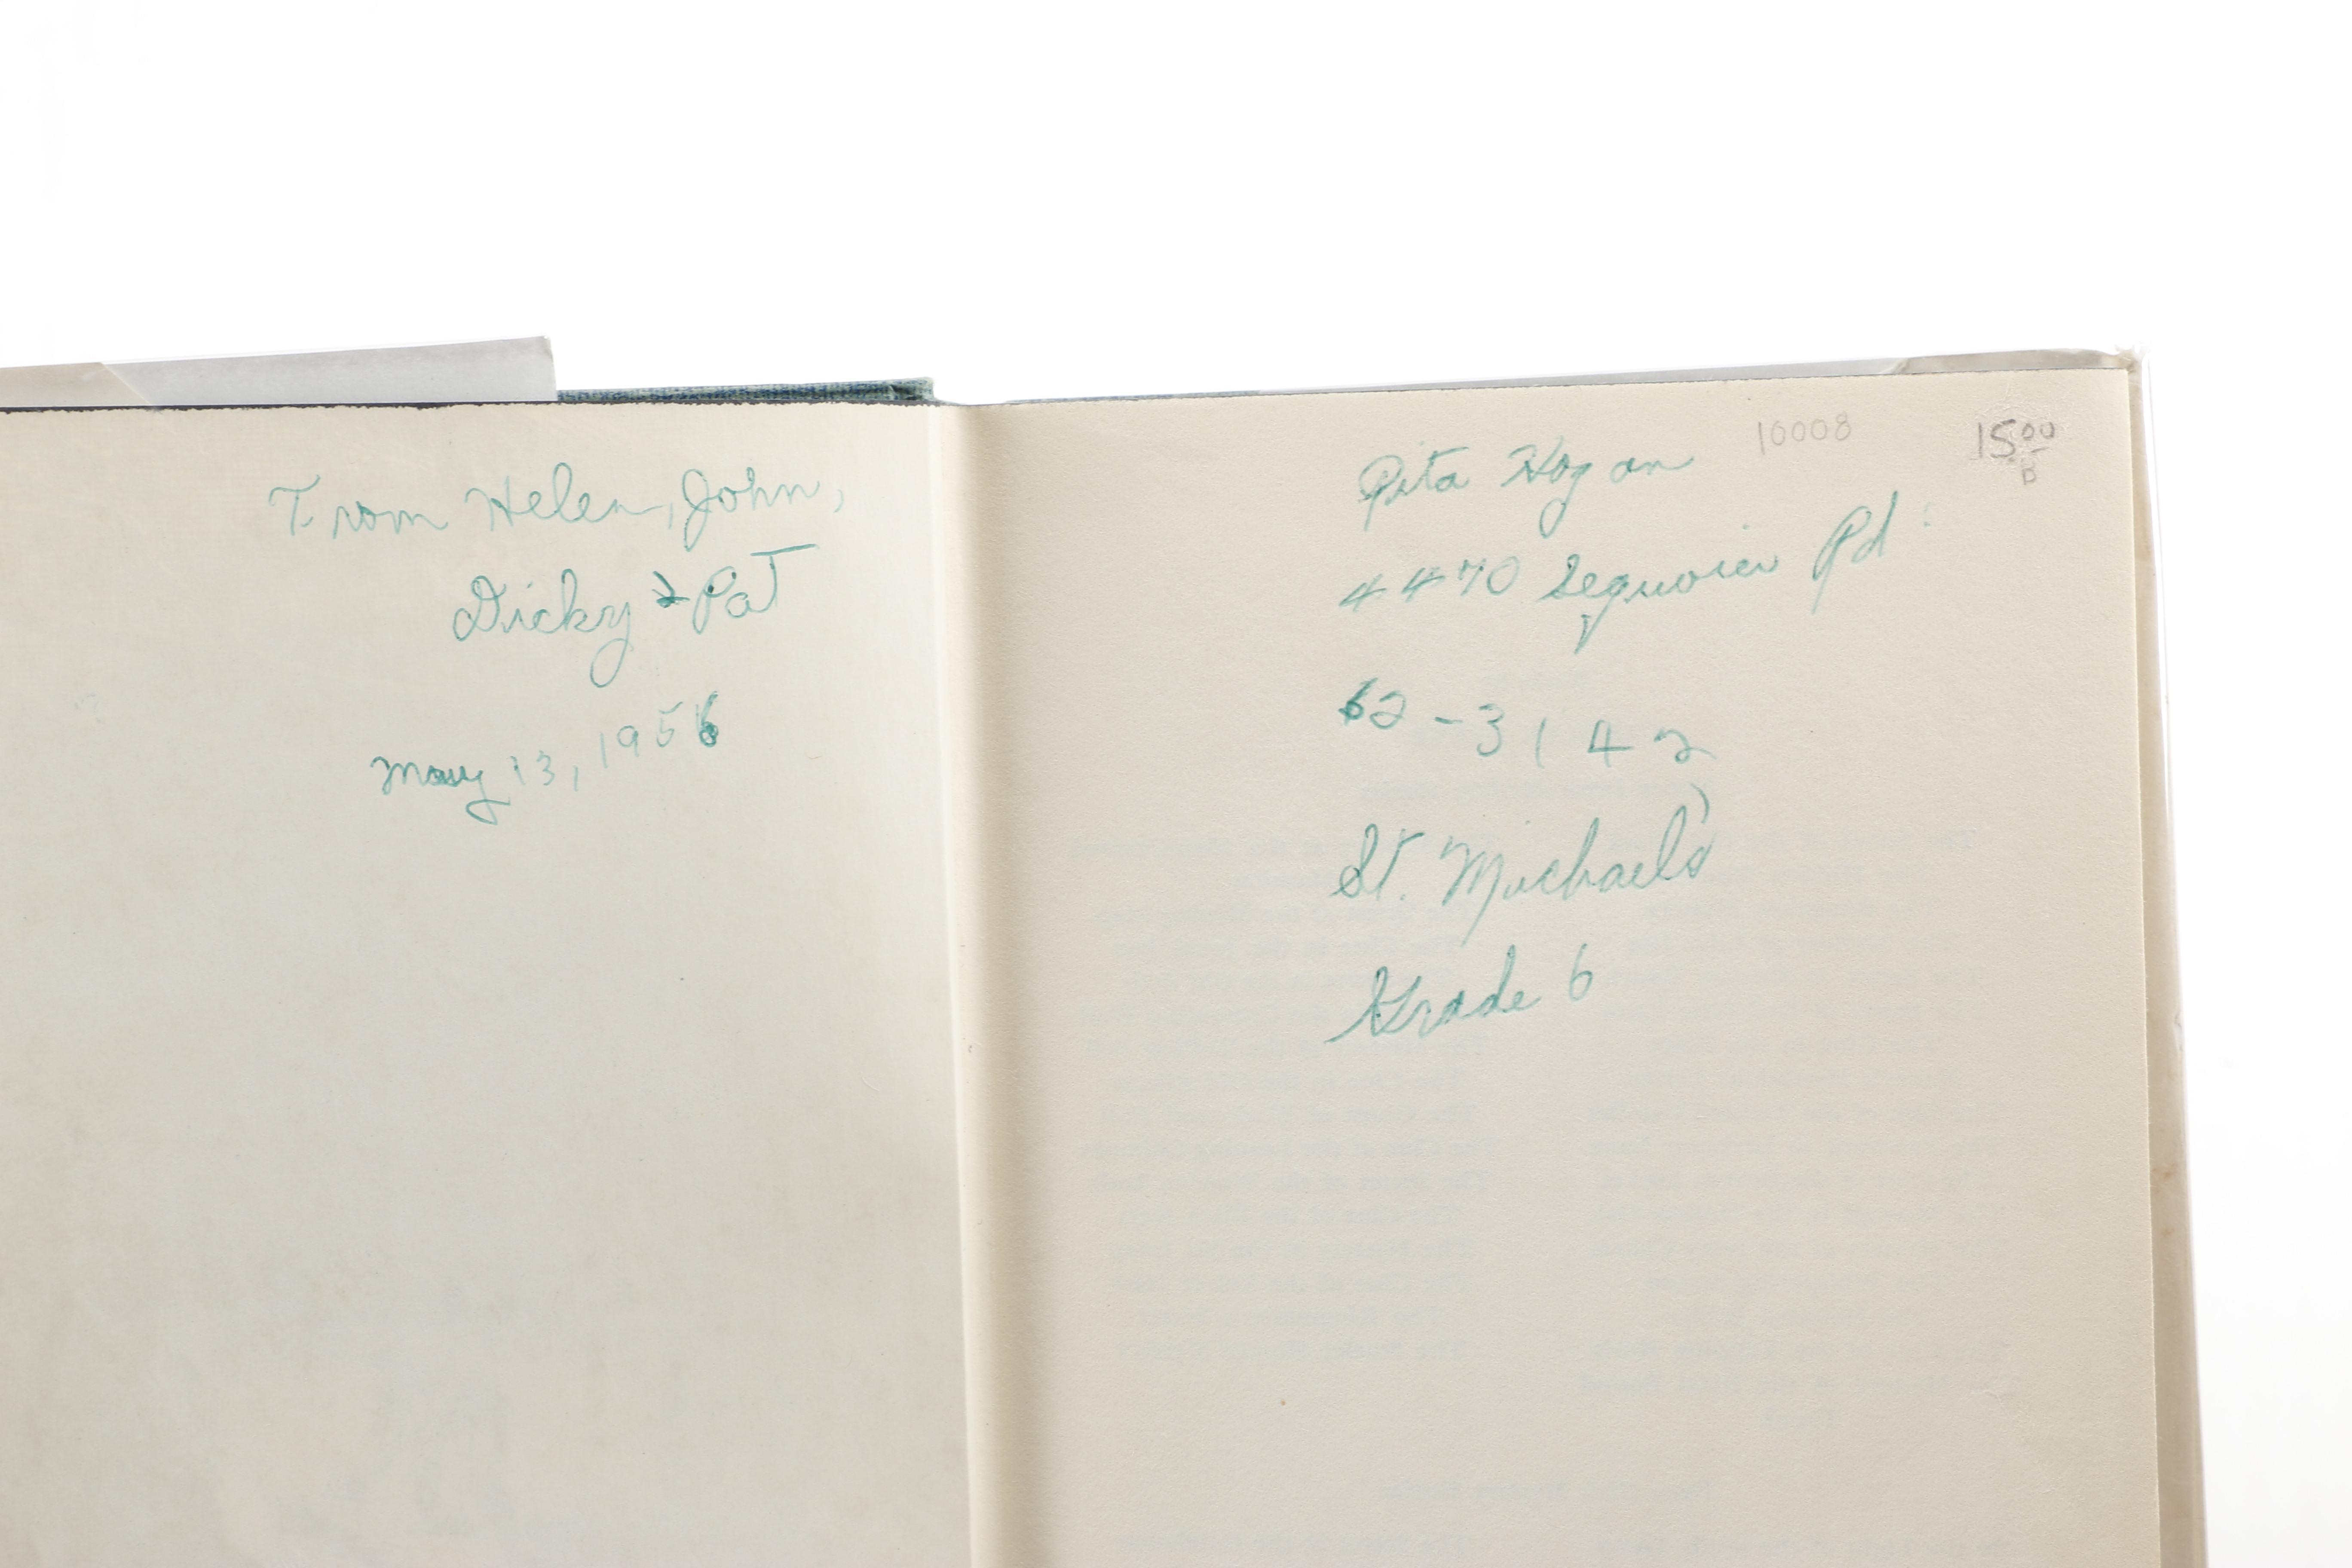 From Helen, John,
Dicky & Pat
May 13, 1956
10008
15.00
B
Rita Hogan
4470 Sequoia Rd.
62-3142
St. Michael's
Grade 6